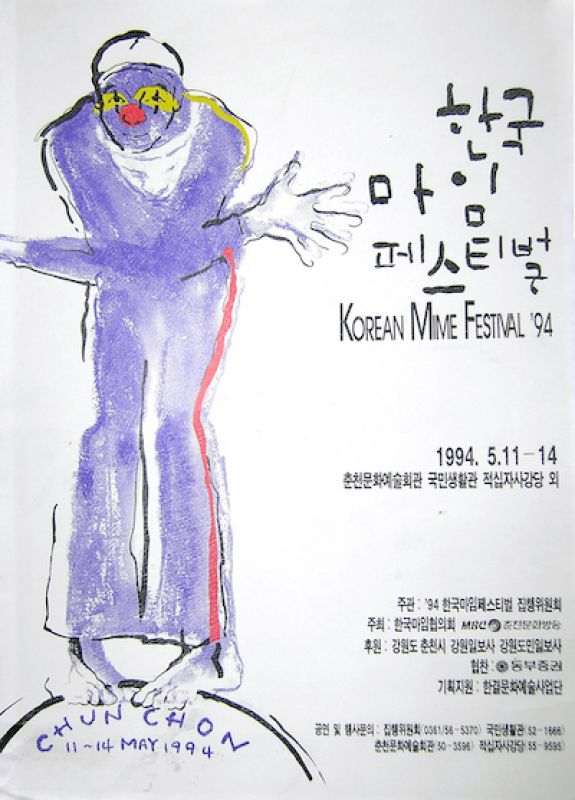 한국
마임
페스티벌
KOREAN MIME FESTIVAL '94
1994. 5.11-14
춘천문화예술회관 국민생활관 적십자사강당 외
주관 : '94 한국마임페스티벌 집행위원회
주최 : 한국마임협의회 MBC 춘천문화방송
후원 : 강원도 춘천시 강원일보사 강원도민일보사
협찬 : 동부증권
기획지원 : 한결문화예술사업단
공연 및 행사문의 : 집행위원회(0361/56-5370) 국민생활관(52-1666)
춘천문화예술회관(50-3596) 적십자사강당(55-9595)
CHUN CHON
11~14 MAY 1994